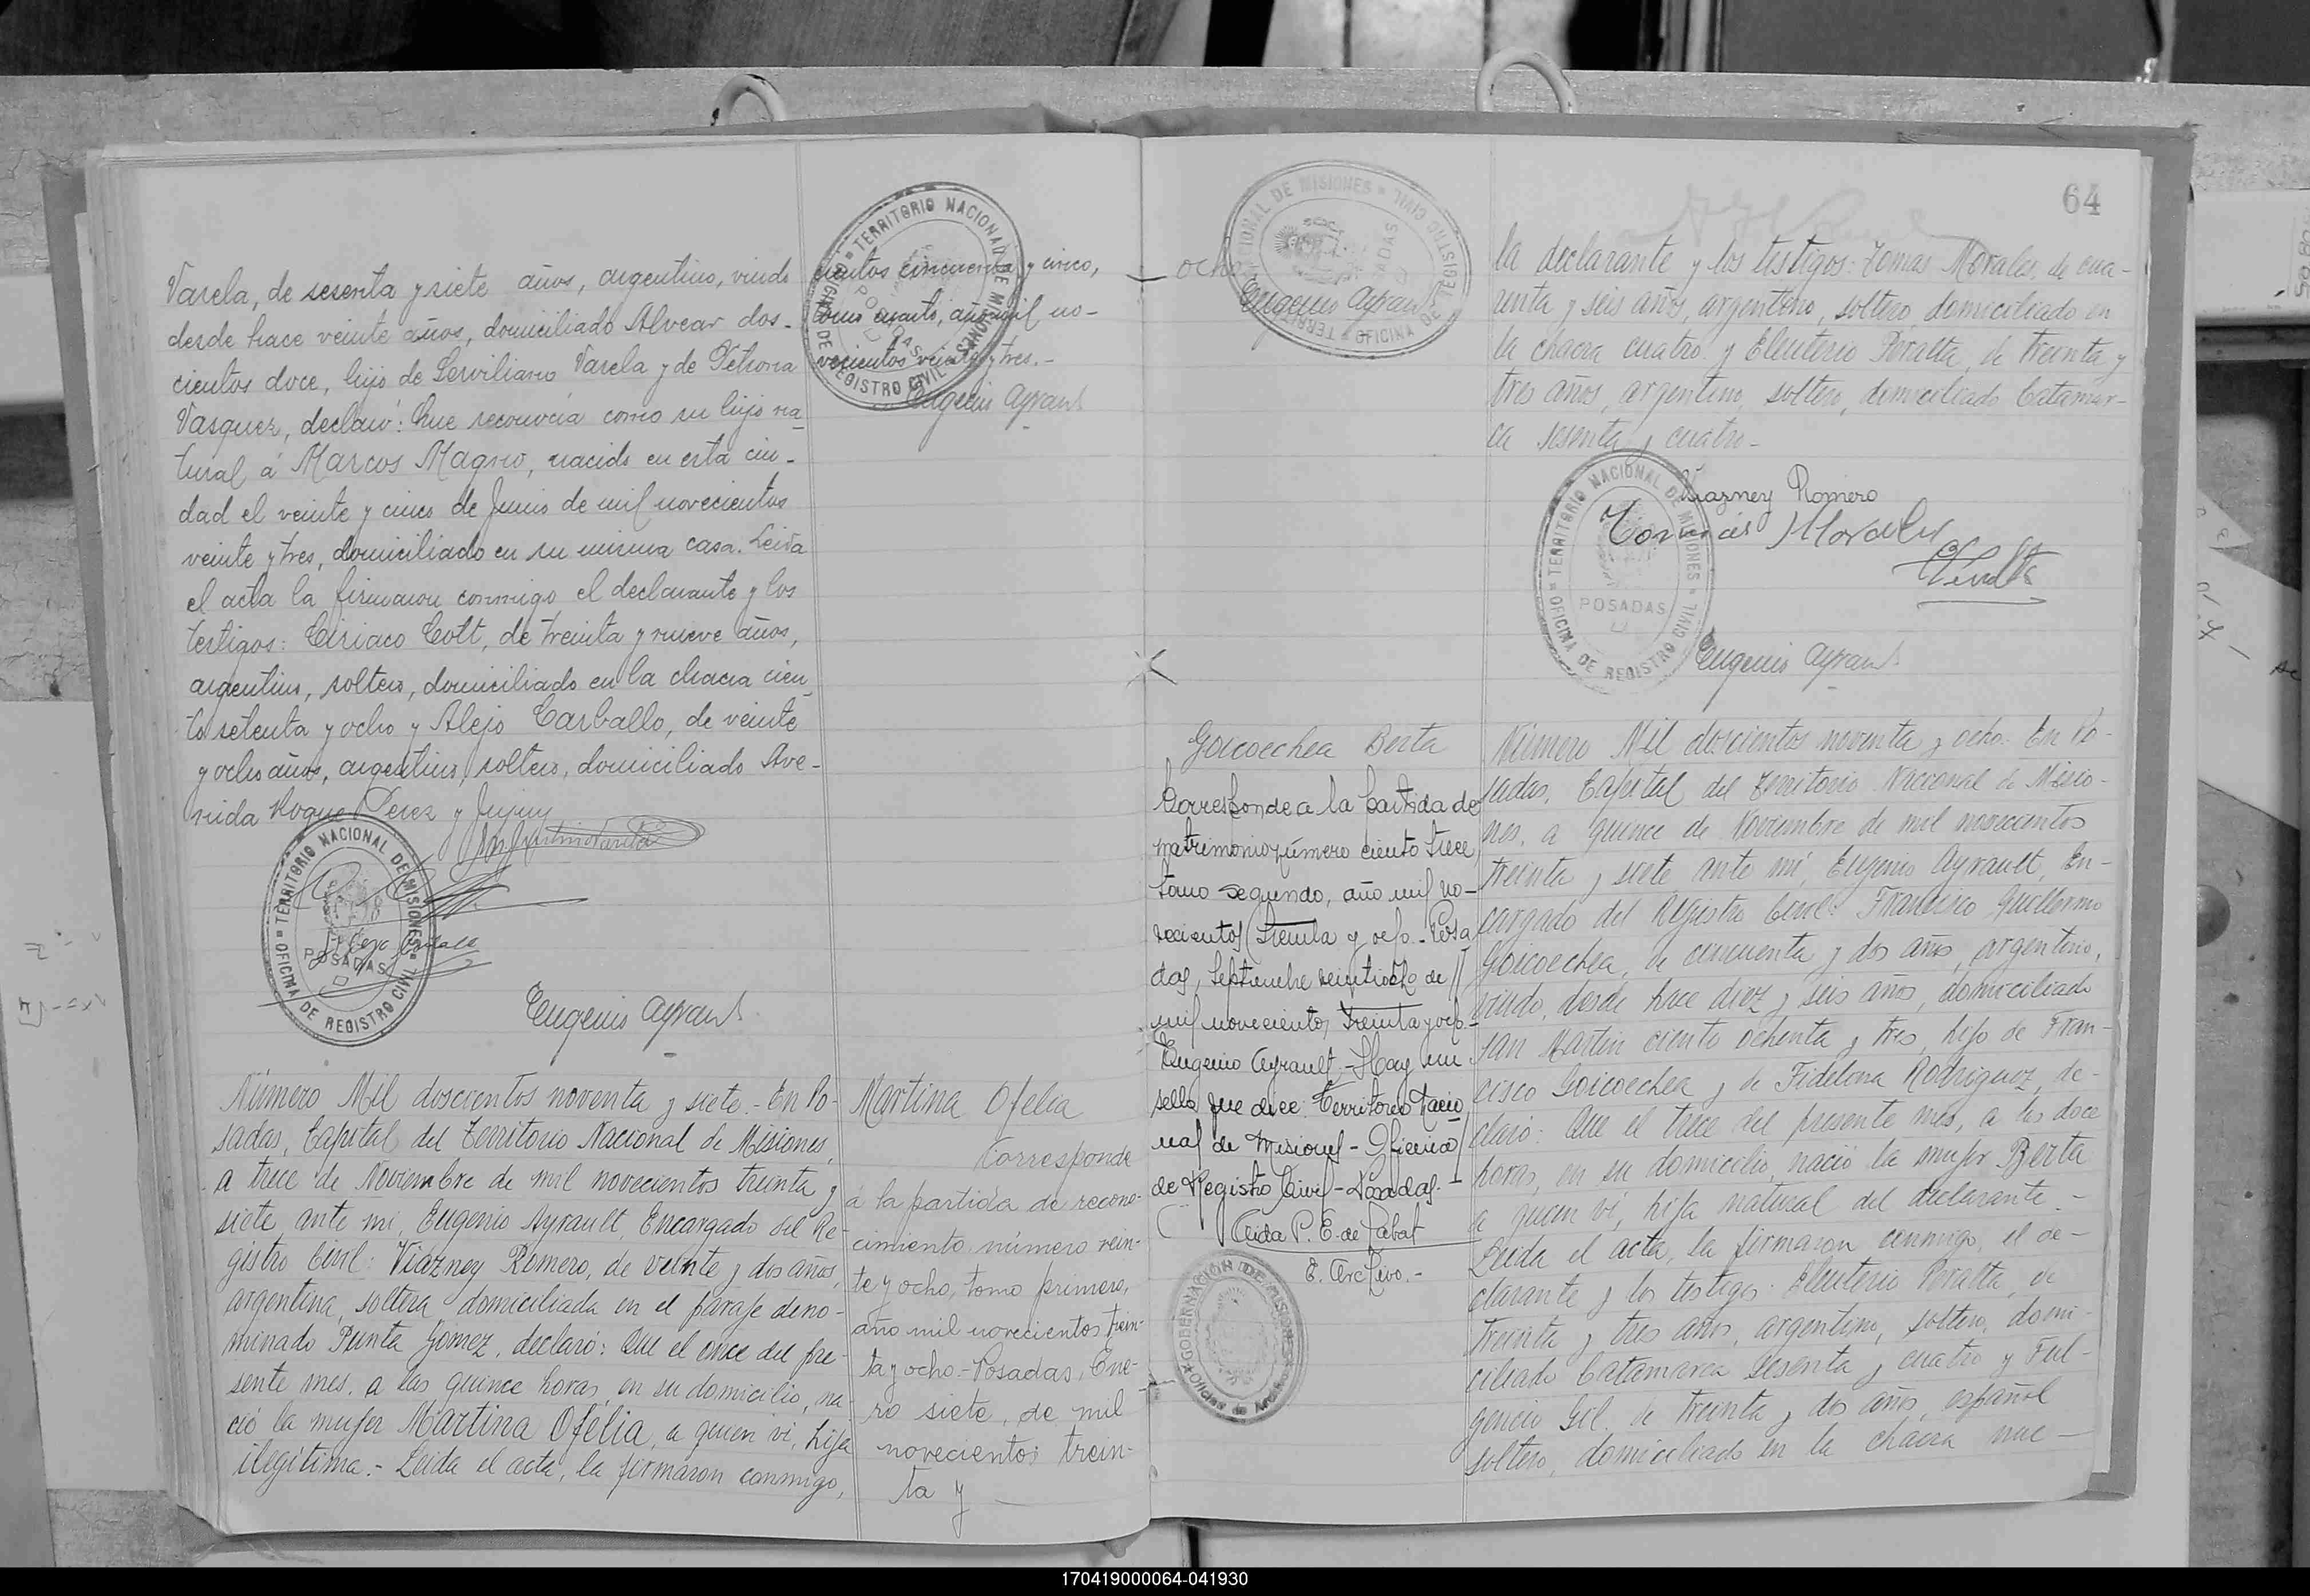 Varela, de sesenta y siete años, argentino, viudo
desde hace veinte años, domiciliado Alvear dos-
cientos doce, hijo de Serviliano Varela y de Petrona
Vasquez, declaró: Que reconocía como su hijo na-
tural á Marcos Magno, nacido en esta ciu-
dad el veinte y cinco de Junio de mil novecientos
veinte y tres, domiciliado en su misma casa. Leida
el acta la firmaron conmigo, el declarante y los
testigos: Ciriaco Cott, de treinta y nueve años,
argentino, soltero, domiciliado en la chacra cien-
to setenta y ocho y Alejo Carballo, de veinte
y ocho años, argentino, soltero, domiciliado Ave-
nida Roque Perez y Jujuy
TERRITORIO NACIONAL DE MISIONES
POSADAS
OFICINA DE REGISTRO CIVIL
Eugenio Ayrault
cientos cincuenta y cinco,
tomo cuarto, año mil no-
vecientos veinte y tres.-
Eugenio Ayrault
TERRITORIO NACIONAL DE MISIONES
POSADAS
OFICINA DE REGISTRO CIVIL
Número Mil doscientos noventa y siete.- En Po-
sadas, Capital del Territorio Nacional de Misiones,
a trece de Noviembre de mil novecientos treinta y
siete, ante mi, Eugenio Ayrault, Encargado del Re-
gistro Civil: Viazney Romero, de veinte y dos años,
argentina, soltera, domiciliada en el paraje deno-
minado Punta Gómez, declaró: Que el once del pre-
sente mes, a las quince horas, en su domicilio, na-
ció la mujer Martina Ofelia, a quien vi, hija
ilegítima.- Leida el acta, la firmaron conmigo,
Martina Ofelia
Corresponde
á la partida de recono-
cimiento número vein-
te y ocho, tomo primero,
año mil novecientos trein-
ta y ocho.- Posadas, Ene-
ro siete, de mil
novecientos trein-
ta y
ocho
Eugenio Ayrault
64
la declarante y los testigos: Tomas Morales, de cua-
renta y seis años, argentino, soltero, domiciliado en
la chacra cuatro y Eleuterio Peralta, de treinta y
tres años, argentino, soltero, domiciliado Catamar-
ca sesenta y cuatro-
Viazney Romero
Tomás Morales
Peralta
TERRITORIO NACIONAL DE MISIONES
POSADAS
OFICINA DE REGISTRO CIVIL
Eugenio Ayrault
Goicoechea Berta
Corresponde a la partida de
matrimonio número ciento trece
tomo segundo, año mil no-
vecientos treinta y ocho.- Posa
das, Septiembre veintiocho de
mil novecientos treinta y ocho.-
Eugenio Ayrault - Hay un
sello que dice: Territorio Nacio
nal de Misiones - Oficina
de Registro Civil - Posadas.-
Aida P. E. de Labat
E. Archivo.-
GOBERNACION DE MISIONES
Número Mil doscientos noventa y ocho. En Po-
sadas, Capital del Territorio Nacional de Misio-
nes, a quince de Noviembre de mil novecientos
treinta y siete, ante mi, Eugenio Ayrault, En-
cargado del Registro Civil: Francisco Guillermo
Goicoechea, de cincuenta y dos años, argentino,
viudo, desde hace diez y seis años, domiciliado
San Martin ciento ochenta y tres, hijo de Fran-
cisco Goicoechea y de Fidelina Rodriguez, de-
claró: Que el trece del presente mes, a las doce
horas, en su domicilio, nació la mujer Berta
a quien vi, hija natural del declarante.-
Leida el acta, la firmaron conmigo, el de-
clarante y los testigos: Eleuterio Peralta, de
treinta y tres años, argentino, soltero, domi-
ciliado Catamarca sesenta y cuatro y Ful-
gencio Gil, de treinta y dos años, español
soltero, domiciliado en la chacra nue-
170419000064-041930